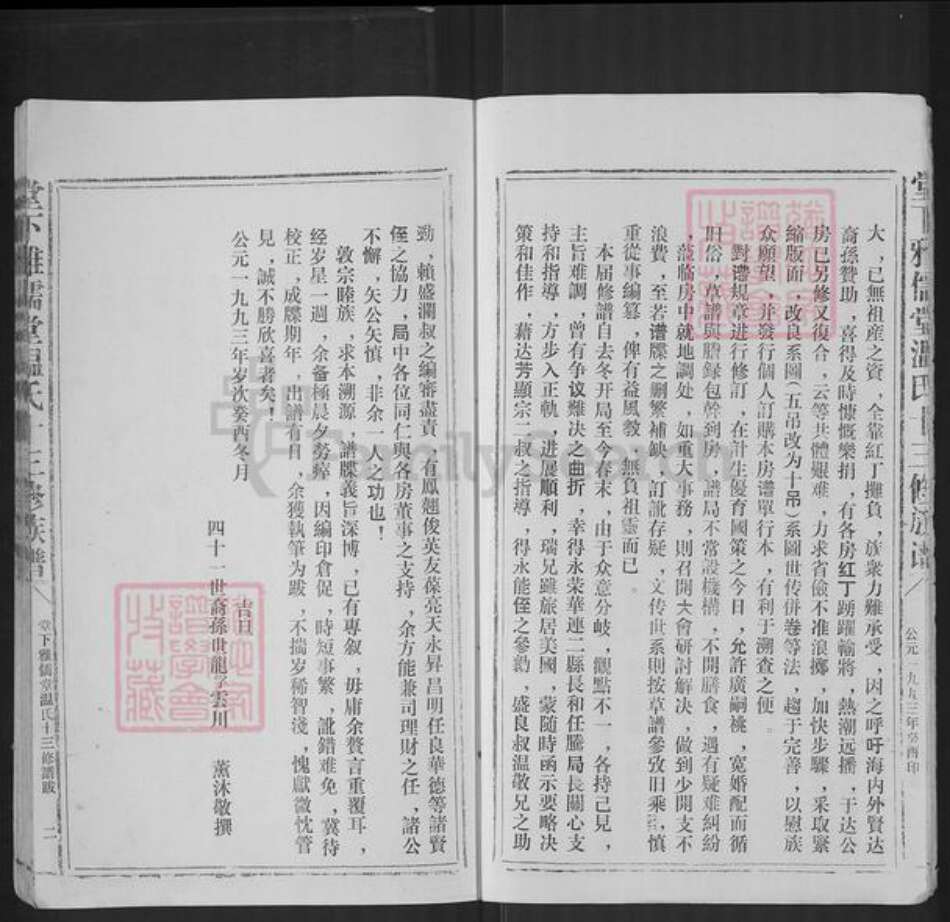 大，已無祖産之資，全靠紅丁攤負，族衆力難承受，因之呼吁海内外賢达
裔孫贊助，喜得及時慷慨樂捐，有各房红丁踴躍輸將，熱潮远播，于达公
房已另修又復合，云等共體艱难，力求省儉不准浪擲，加快步驟，采取緊
縮版面，改良系圖（五吊改为十吊）系圖世传併卷等法，趨于完善，以慰族
众願望，并發行個人訂購本房谱單行本，有利于溯查之便。
對谱規章進行修訂，在計生優育國策之今日，允許廣嗣桃，寬婚配而循
旧俗，草譜與謄録包幹到房，譜局不常設機構，不開膳食，遇有疑难糾紛
，蒞临房中就地調处，如重大事務，則召開大會研討解决，做到少開支不
浪費，至若谱牒之删繁補缺，訂訛存疑，文传世系則按草譜參攷旧乘，慎
重從事編纂，俾有益風教，無負祖靈而已。
本届修譜自去冬开局至今春末，由于众意分岐，觀點不一，各持己見，
主旨难調，曾有争议難决之曲折，幸得永荣華連二縣長和任騰局長關心支
持和指導，方步入正軌，进展顺利，瑞兄雖旅居美國，蒙随時函示要略决
策和佳作，藉达芳顯宗二叔之指導，得永能侄之參勷，盛良叔温敬兄之助
劲，賴盛瀾叔之编審盡責，有鳳翹俊英友葆亮天永昇昌明任良華德等諸賢
侄之協力，局中各位同仁與各房董事之支持，余方能兼司理財之任，諸公
不懈，矢公矢慎，非余一人之功也！
敦宗睦族，求本溯源，譜牒義旨深博，已有專叙，毋庸余贅言重覆耳，
经岁星一週，余备極晨夕勞瘁，因編印倉促，時短事繁，訛錯难免，冀待
校正，成牒期年，出譜有日，余獲執筆为跋，不揣岁稀智淺，愧獻微忱管
見，誠不勝欣喜者矣！
公元一九九三年岁次癸酉冬月
吉旦
四十一世裔孫世龍字雲川　薰沐敬撰
堂下雅儒堂温氏十三修族譜
公元一九九三年癸酉印
堂下雅儒堂温氏十三修族譜
堂下雅儒堂温氏十三修譜跋
二
FamilySearch